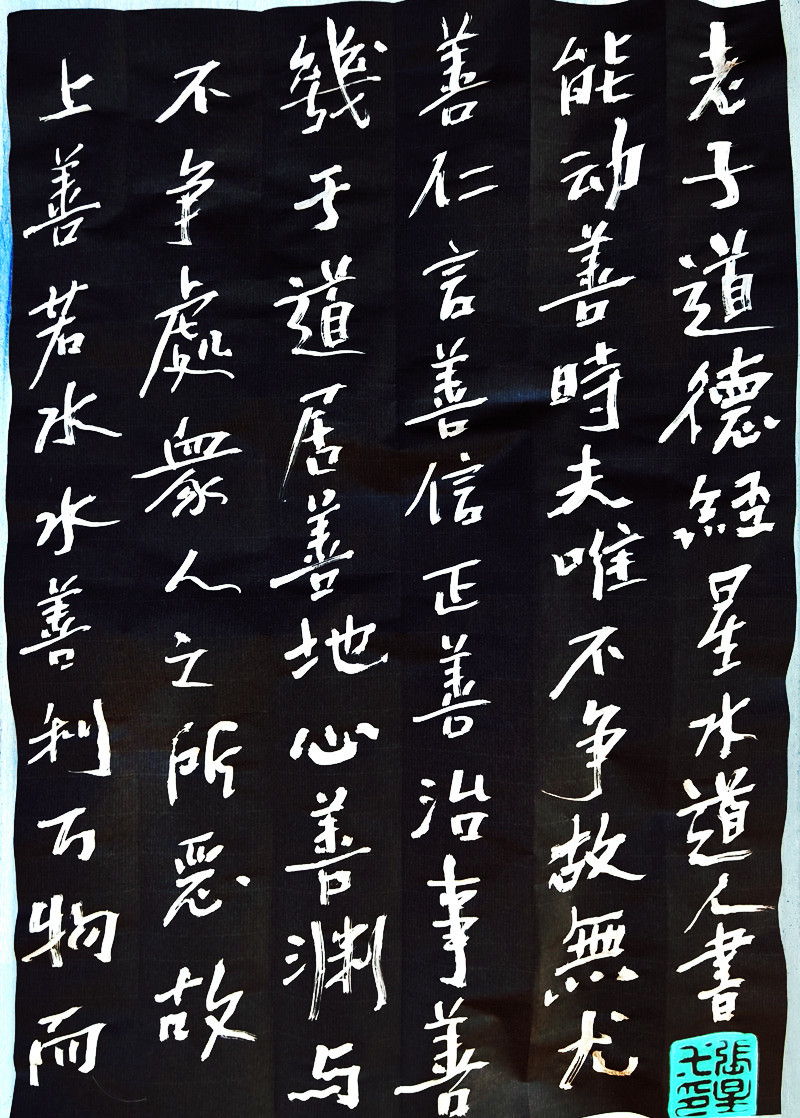 上善若水水善利万物而
不争處衆人之所恶故
幾于道居善地心善渊与
善仁言善信正善治事善
能动善時夫唯不争故無尤
老子道德經星水道人書
張星之印